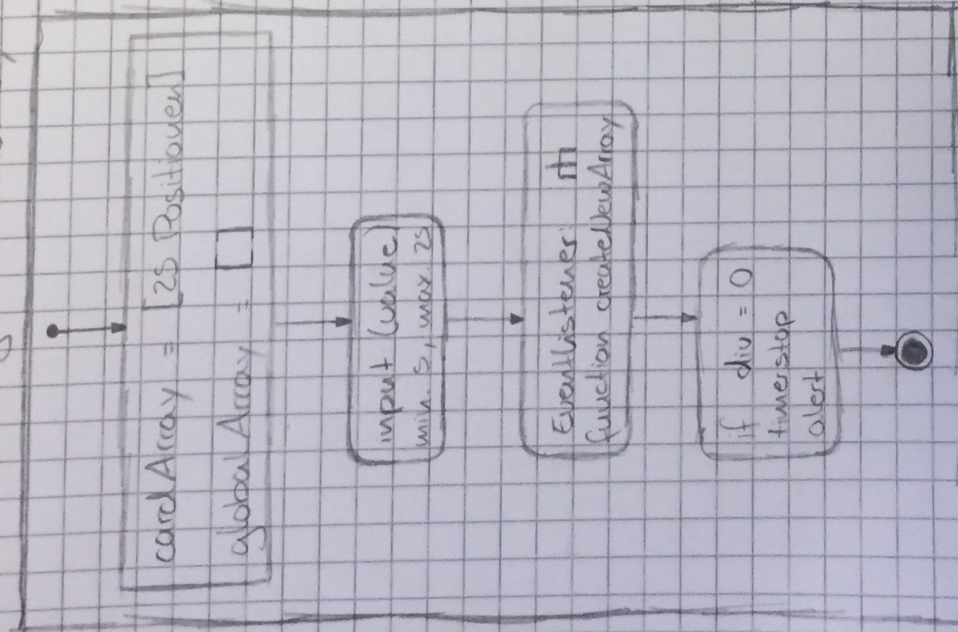 cardArray = [25 Positionen]
globalArray = []
input (value)
min. 5, max. 25
Eventlistener:
function createNewArray
if div = 0
timerstop
alert